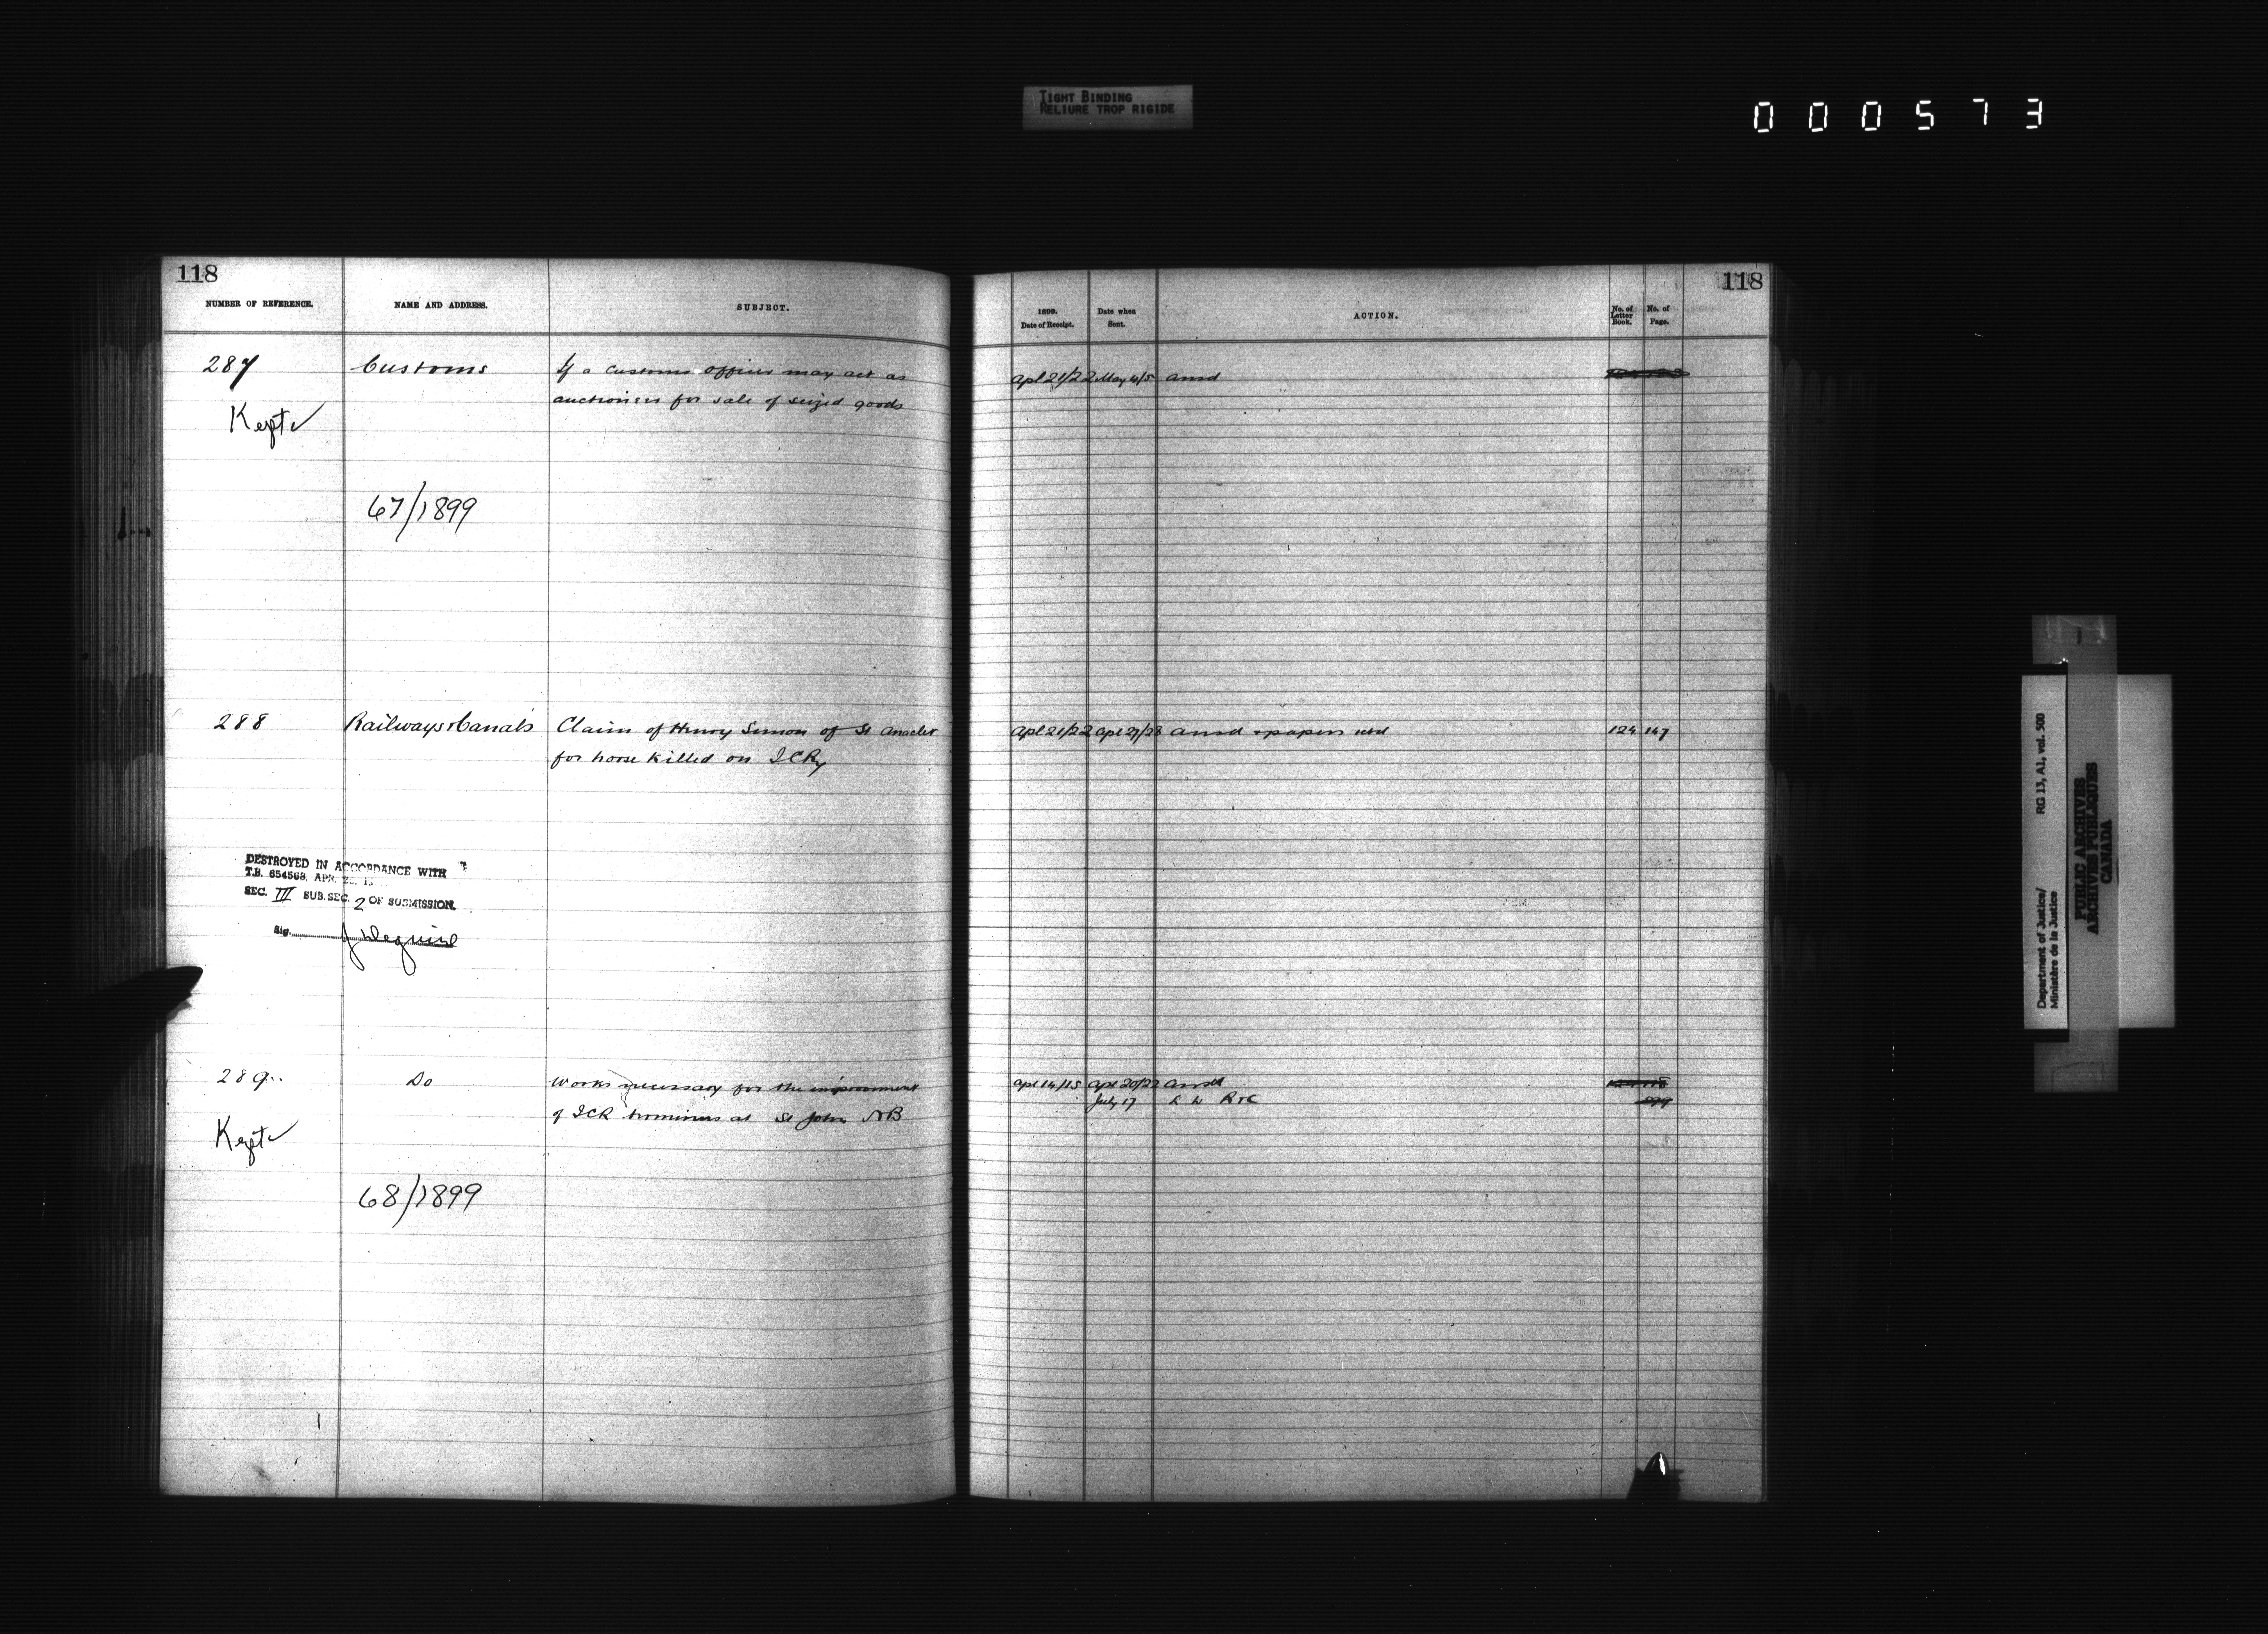 TIGHT BINDING
RELIURE TROP RIGIDE
000573
118
NUMBER OF REFERENCE.
NAME AND ADDRESS.
SUBJECT.
287
Customs
If a customs officer may act as
auctioneer for sale of seized goods
Kept ✓
67/1899
288
Railways & Canals
Claim of Henry Simon of St Anaclet
for horse killed on ICRy
DESTROYED IN ACCORDANCE WITH
T.B. 654563, APR.
SEC. III SUB. SEC. 2 OF SUBMISSION.
Sig.
289
Do
Works necessary for the improvement
of ICR terminus at St John NB
Kept ✓
68/1899
118
1899.
Date of Receipt.
Date when
Sent.
ACTION.
No. of
Letter
Book.
No. of
Page.
Apl 21/22 May 4/5 ansd
Apl 21/22 Apl 27/28 ansd & papers retd 124 147
Apl 14/15 Apl 20/22 ansd
July 17 R & C
Department of Justice/
Ministère de la Justice
RG 13, A1, vol. 500
PUBLIC ARCHIVES
ARCHIVES PUBLIQUES
CANADA